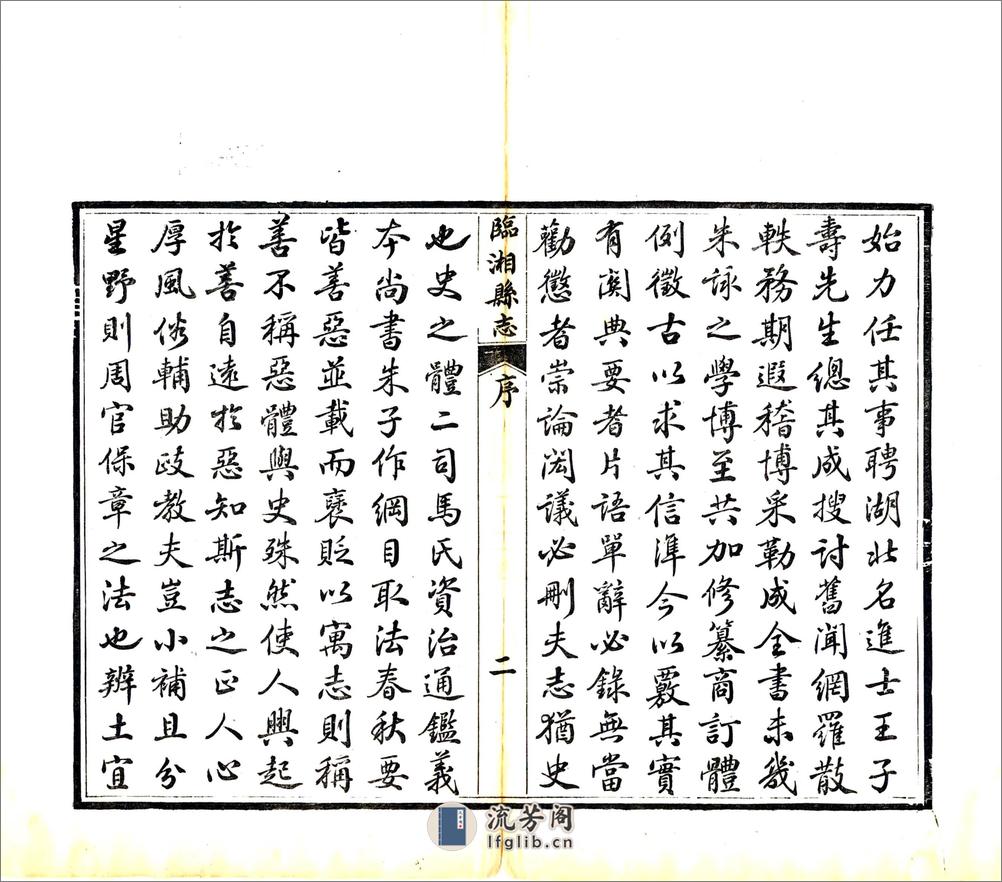 始力任其事聘湖北名進士王子
壽先生總其成搜討舊聞網羅散
軼務期遐稽博采勒成全書未幾
朱詠之學博至共加修纂商訂體
例徵古以求其信準今以覈其實
有関典要者片語單辭必錄無當
勸懲者崇論閎議必刪夫志猶史
臨湘縣志
序
二
也史之體二司馬氏資治通鑑義
本尚書朱子作綱目取法春秋要
皆善惡並載而襃貶以寓志則稱
善不稱惡體與史殊然使人興起
於善自遠於惡知斯志之正人心
厚風俗輔助政教夫豈小補且分
星野則周官保章之法也辨土宜
流芳阁
lfglib.cn